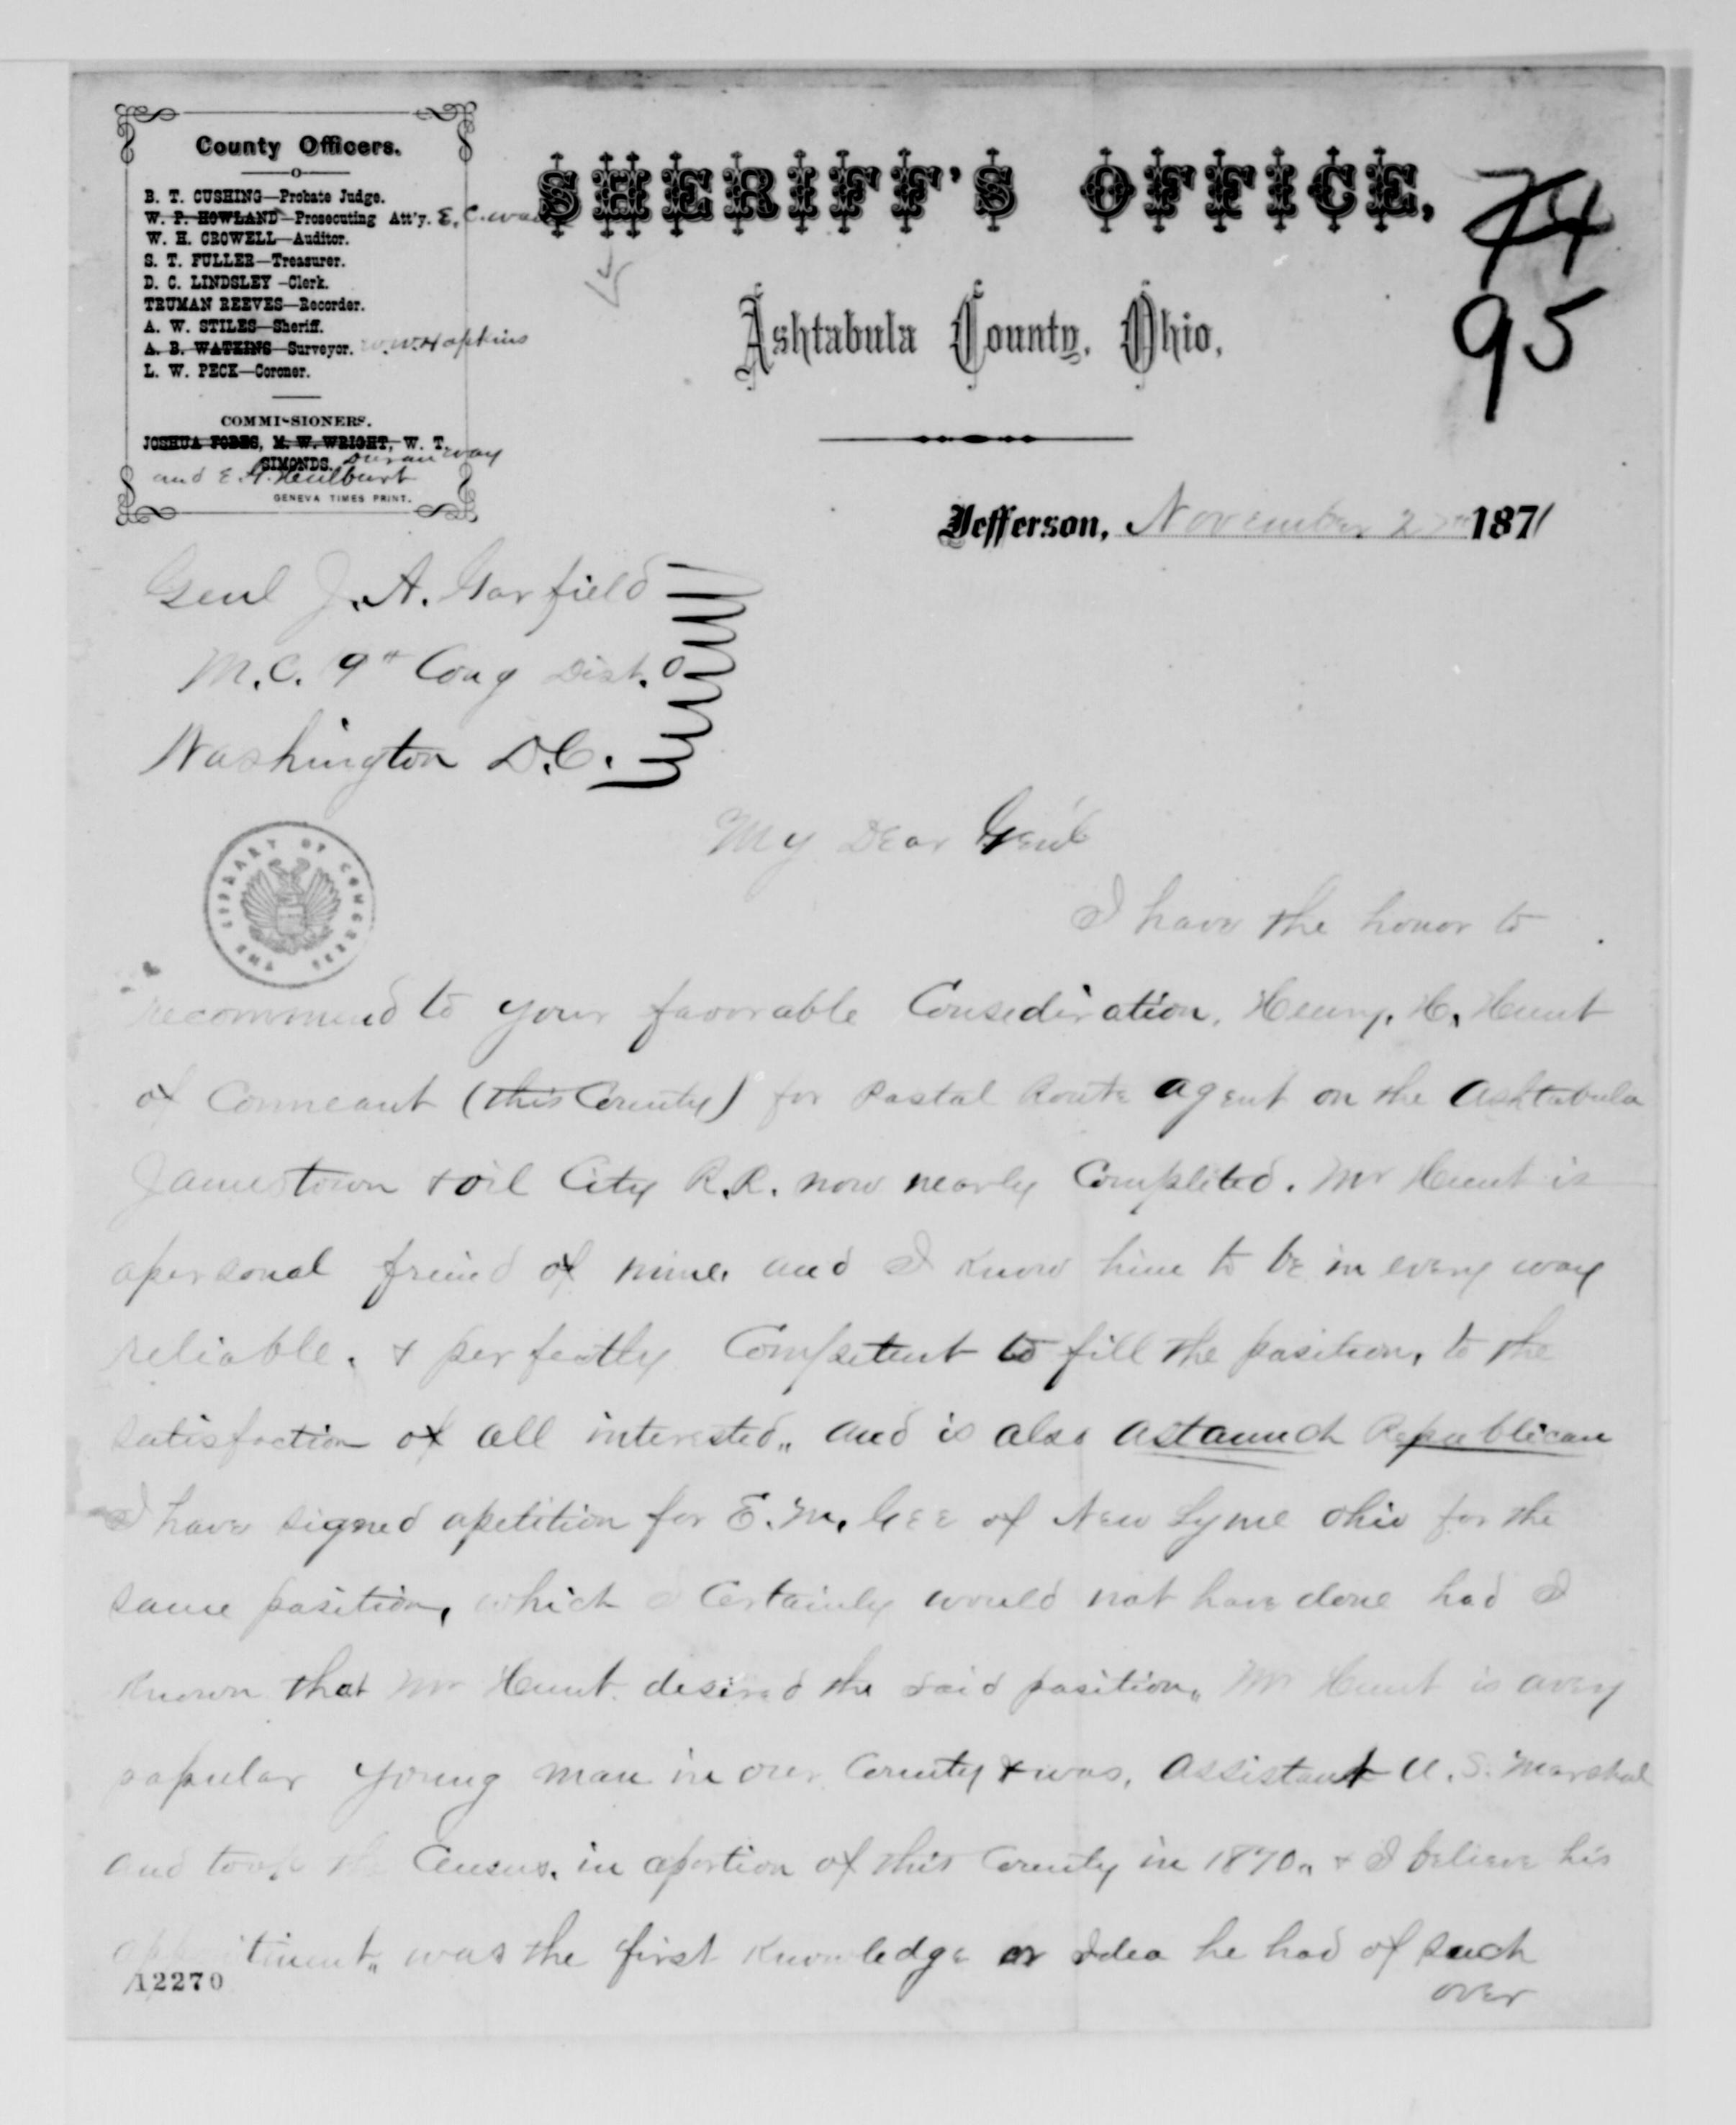 County Officers.
B. T. CUSHING—Probate Judge.
W. P. HOWLAND—Prosecuting Att'y. E. C. Wade
W. H. CROWELL—Auditor.
S. T. FULLER—Treasurer.
D. C. LINDSLEY—Clerk.
TRUMAN REEVES—Recorder.
A. W. STILES—Sheriff.
A. B. WATKINS—Surveyor. W. W. Hopkins
L. W. PECK—Coroner.
COMMISSIONERS.
JOSHUA FOBES, M. W. WRIGHT, W. T.
SIMONDS. way
and E. G. Hurlburt
GENEVA TIMES PRINT.
SHERIFF'S OFFICE,
Ashtabula County, Ohio,
74
95
Jefferson, November 1871
Genl J. A. Garfield
M.C. 9th Cong Dist. O
Washington D.C.
My Dear Genl
I have the honor to
recommend to your favorable Consediration, Henry. H. Hunt
of Conneaut (this County) for Postal Route agent on the Ashtabula
Jamestown & oil City R.R. now nearly Complited. Mr Hunt is
apersonal freind of mine. and I know him to be in every way
reliable. & perfectly Competent to fill the position, to the
satisfaction of all interested,, and is also astaunch Republican
I have signed apetition for E. M. Gee of New Lyme ohio for the
same position, which I Certainly would not have done had I
known that Mr Hunt. desired the said position,, Mr Hunt is avery
popular young man in our County & was, Assistant U. S. Marshal
and took the Census. in aportion of this County in 1870,, & I believe his
appointment,, was the first knowledge or Idea he had of such
over
12270
THE LIBRARY OF CONGRESS